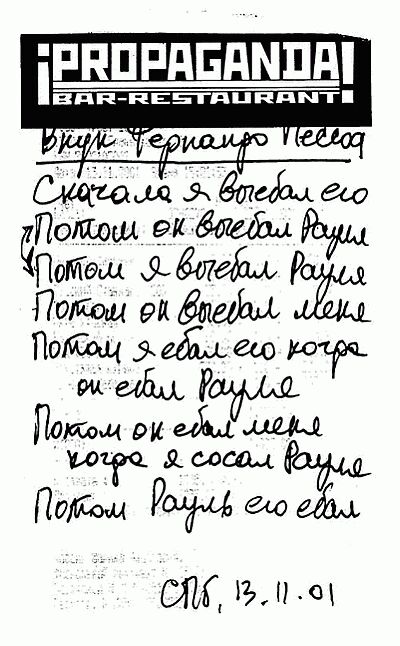 ¡PROPAGANDA!
BAR-RESTAURANT
Внук Фернандо Пессоа
Сначала я выебал его
Потом он выебал Рауля
Потом я выебал Рауля
Потом он выебал меня
Потом я ебал его когда
он ебал Рауля
Потом он ебал меня
когда я сосал Рауля
Потом Рауль его ебал
СПб, 13.11.01